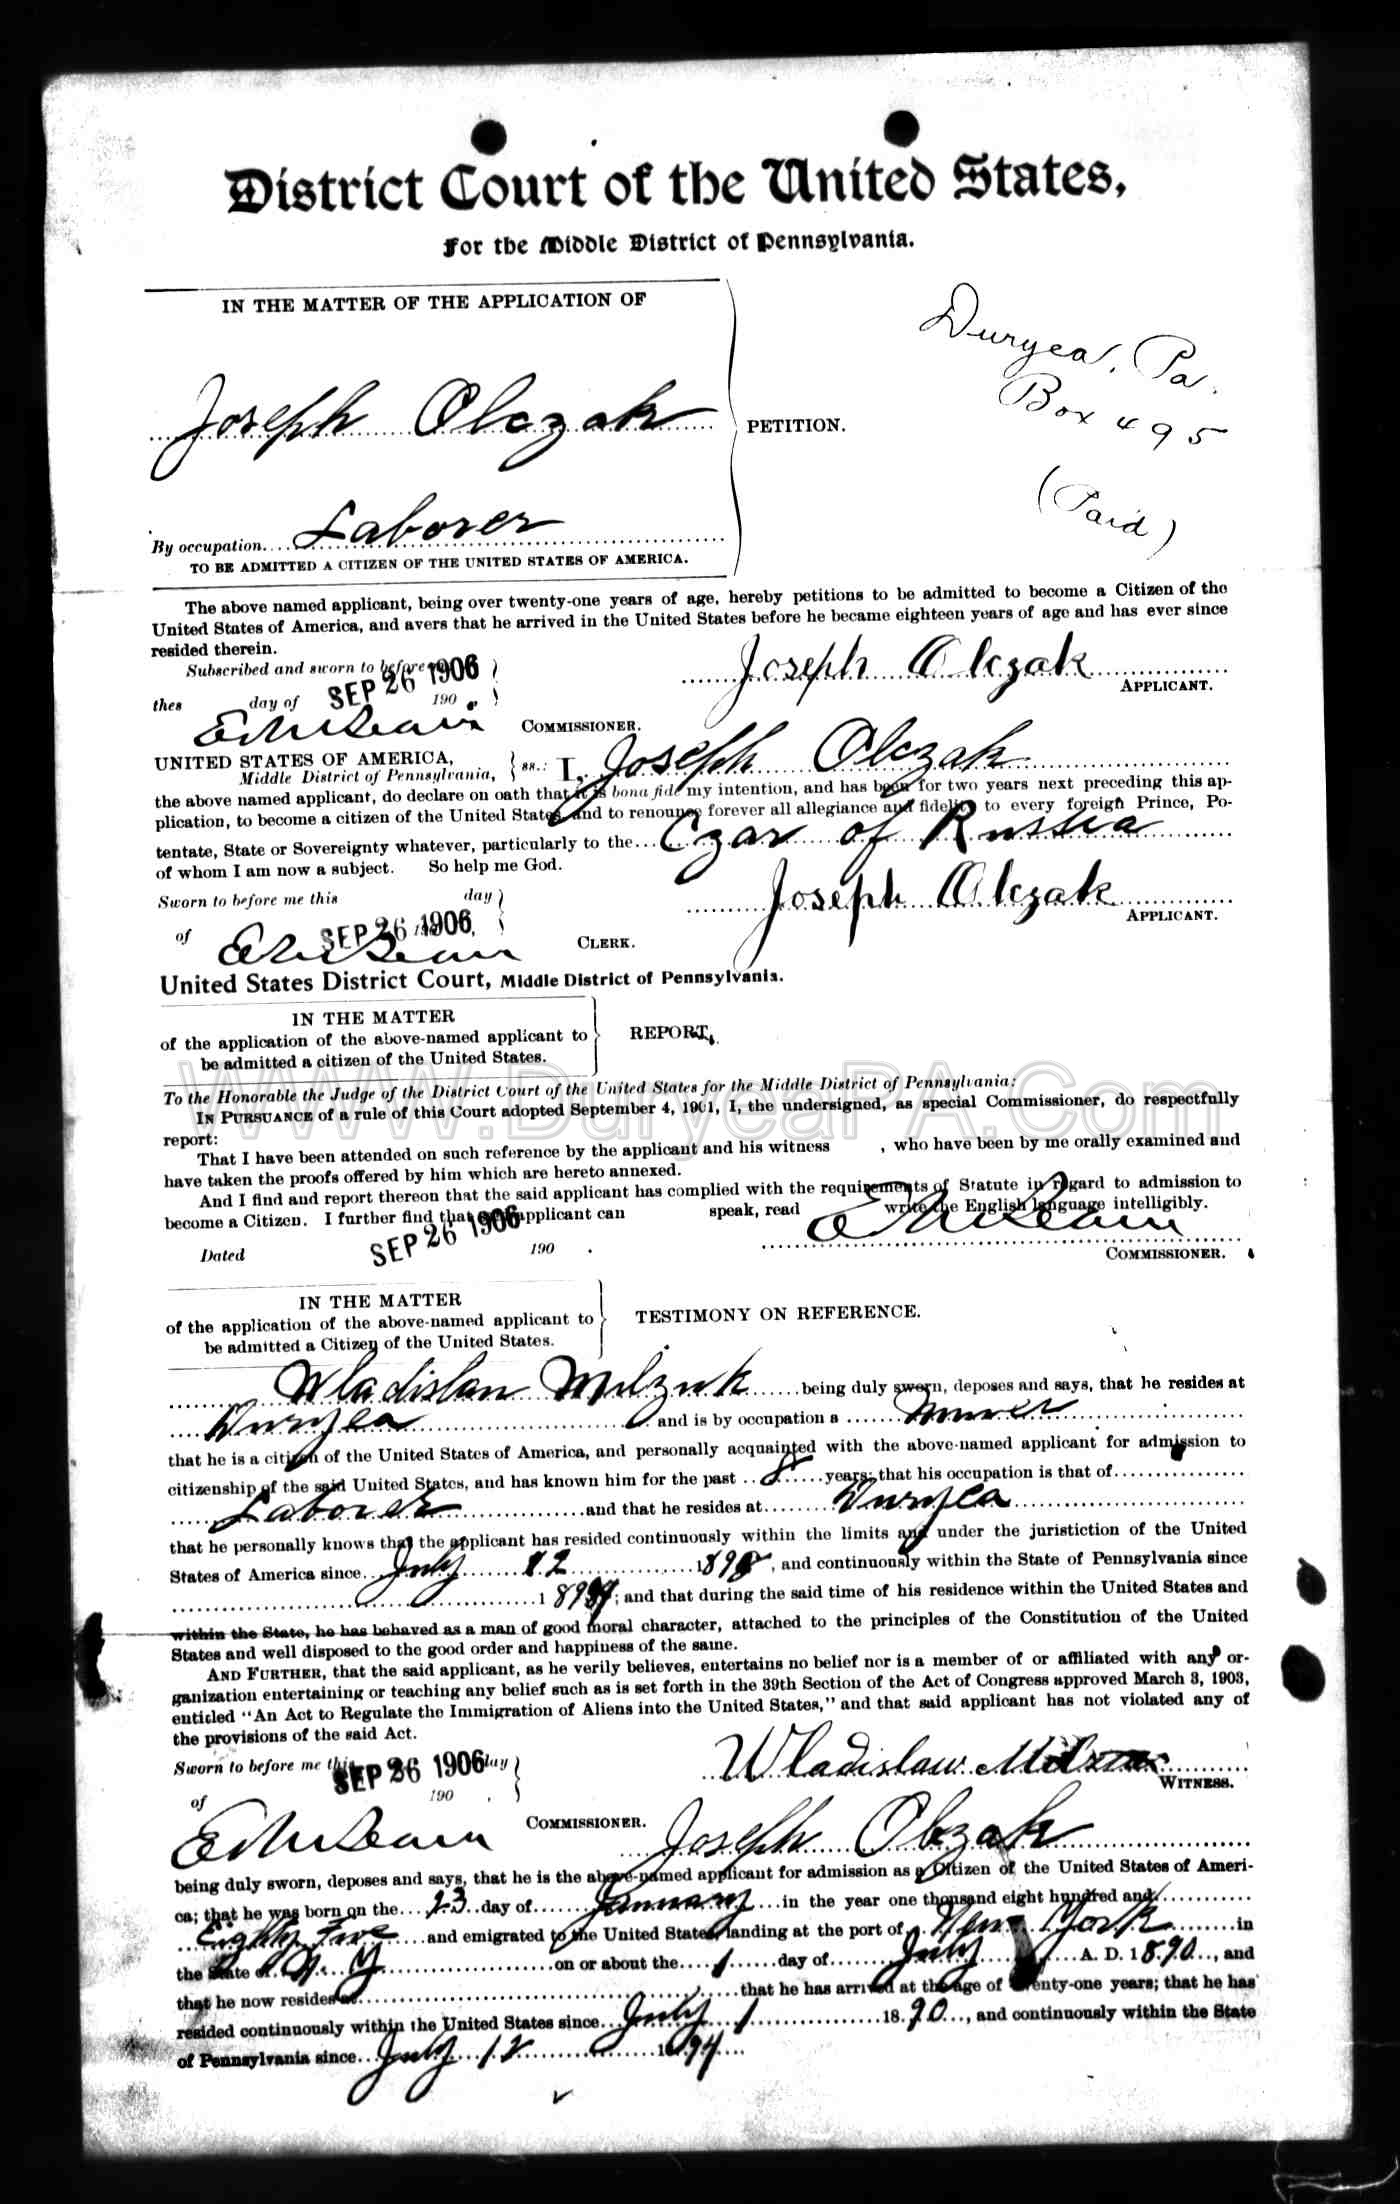 District Court of the United States,
For the Middle District of Pennsylvania.
IN THE MATTER OF THE APPLICATION OF
Duryea, Pa.
Box 495
(Paid)
Joseph Olczak
PETITION.
By occupation.... Laborer
TO BE ADMITTED A CITIZEN OF THE UNITED STATES OF AMERICA.
The above named applicant, being over twenty-one years of age, hereby petitions to be admitted to become a Citizen of the
United States of America, and avers that he arrived in the United States before he became eighteen years of age and has ever since
resided therein.
Subscribed and sworn to before
Joseph Olczak
APPLICANT.
thes day of SEP 26 1906 190 .
COMMISSIONER.
UNITED STATES OF AMERICA,
Middle District of Pennsylvania, ss.: I, Joseph Olczak
the above named applicant, do declare on oath that it is bona fide my intention, and has been for two years next preceding this ap-
plication, to become a citizen of the United States, and to renounce forever all allegiance and fidelity to every foreign Prince, Po-
tentate, State or Sovereignty whatever, particularly to the... Czar of Russia
of whom I am now a subject. So help me God.
Sworn to before me this day
Joseph Olczak
APPLICANT.
of SEP 26 1906
CLERK.
United States District Court, Middle District of Pennsylvania.
IN THE MATTER
of the application of the above-named applicant to
be admitted a citizen of the United States.
REPORT.
To the Honorable the Judge of the District Court of the United States for the Middle District of Pennsylvania:
WWW.DuryeaPA.Com
IN PURSUANCE of a rule of this Court adopted September 4, 1901, I, the undersigned, as special Commissioner, do respectfully
report:
That I have been attended on such reference by the applicant and his witness , who have been by me orally examined and
have taken the proofs offered by him which are hereto annexed.
And I find and report thereon that the said applicant has complied with the requirements of Statute in regard to admission to
become a Citizen. I further find that applicant can speak, read write the English language intelligibly.
Dated SEP 26 1906 190 .
COMMISSIONER.
IN THE MATTER
of the application of the above-named applicant to
be admitted a Citizen of the United States.
TESTIMONY ON REFERENCE.
Wladislaw being duly sworn, deposes and says, that he resides at
Duryea and is by occupation a Miner
that he is a citizen of the United States of America, and personally acquainted with the above-named applicant for admission to
citizenship of the said United States, and has known him for the past 8 years; that his occupation is that of
Laborer and that he resides at Duryea
that he personally knows that the applicant has resided continuously within the limits and under the juristiction of the United
States of America since July 12 1898, and continuously within the State of Pennsylvania since
189 ; and that during the said time of his residence within the United States and
within the State, he has behaved as a man of good moral character, attached to the principles of the Constitution of the United
States and well disposed to the good order and happiness of the same.
AND FURTHER, that the said applicant, as he verily believes, entertains no belief nor is a member of or affiliated with any or-
ganization entertaining or teaching any belief such as is set forth in the 39th Section of the Act of Congress approved March 3, 1903,
entitled "An Act to Regulate the Immigration of Aliens into the United States," and that said applicant has not violated any of
the provisions of the said Act.
Sworn to before me this SEP 26 1906 day
Wladislaw
WITNESS.
of 190 .
COMMISSIONER.
Joseph Olczak
being duly sworn, deposes and says, that he is the above-named applicant for admission as a Citizen of the United States of Ameri-
ca; that he was born on the 23 day of January in the year one thousand eight hundred and
Eighty Five and emigrated to the United States, landing at the port of New York in
the State of N. Y on or about the 1 day of July A. D. 1890, and
that he now resides at that he has arrived at the age of twenty-one years; that he has
resided continuously within the United States since July 1 1890, and continuously within the State
of Pennsylvania since July 12 1894